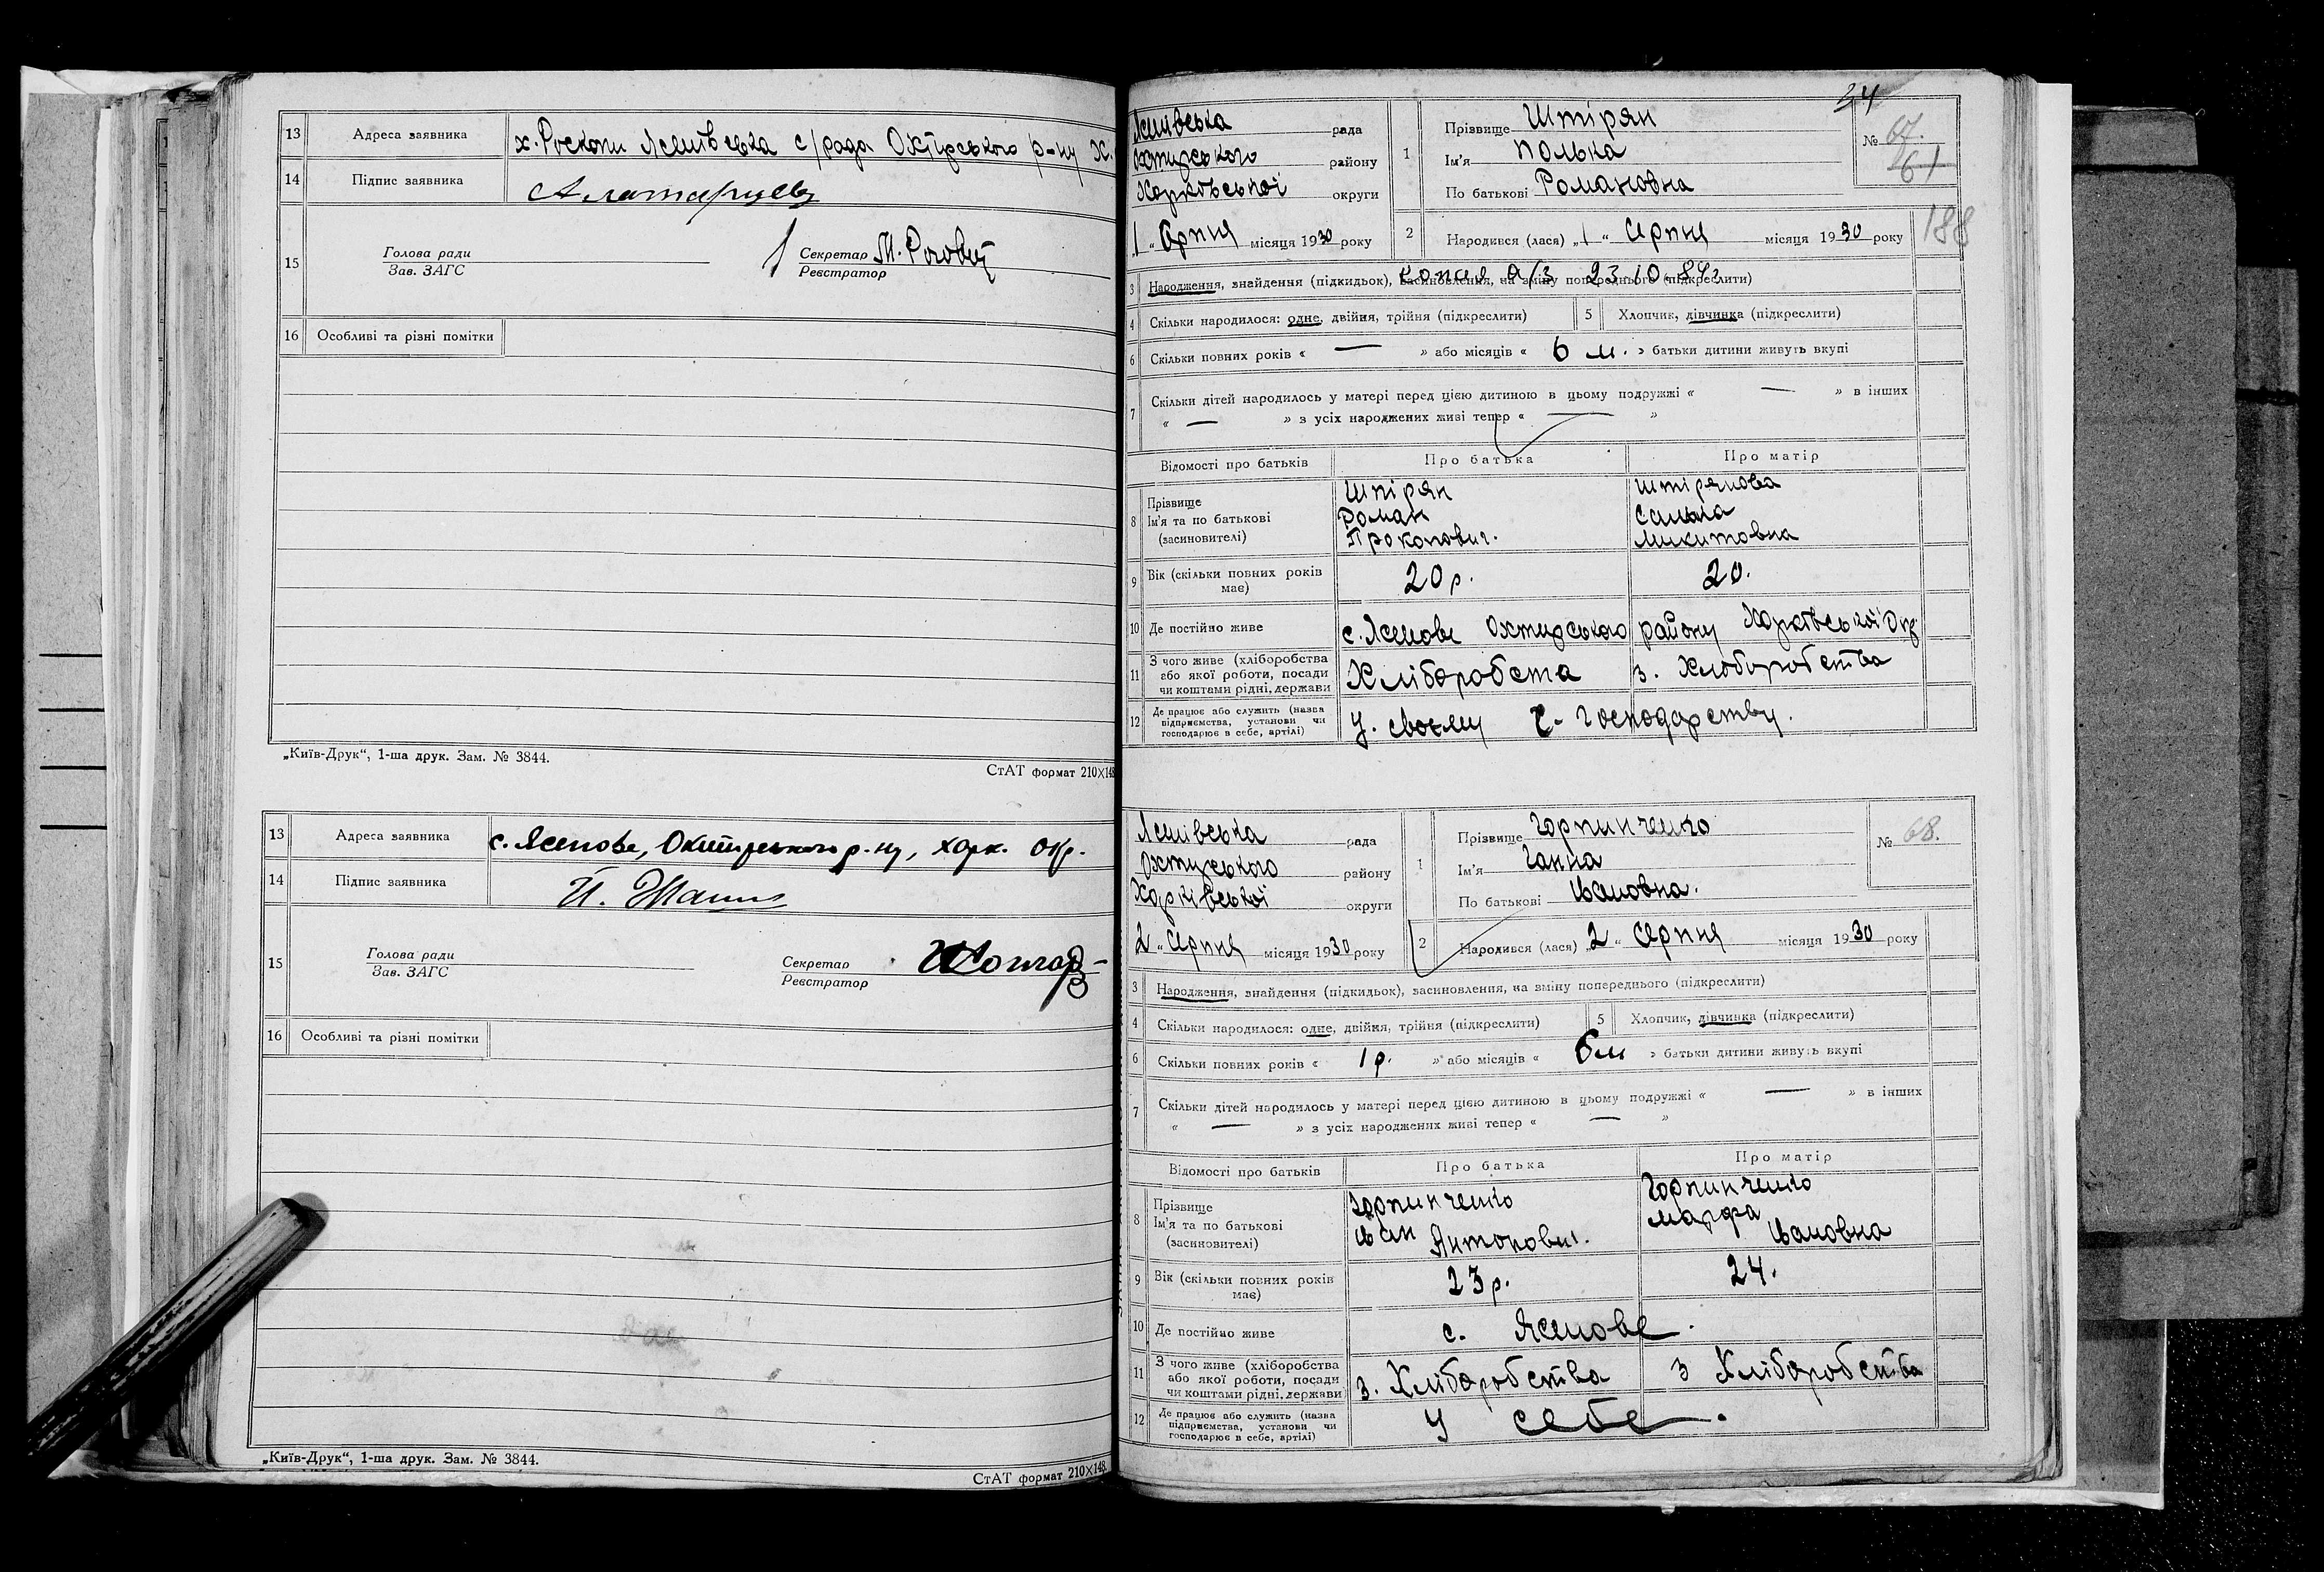 13 Адреса заявника х. Роскопи Ясенівська с/рада Охтирського р-ну Х.
14 Підпис заявника
15 Голова ради
Зав. ЗАГС
Секретар
Реєстратор
16 Особливі та різні помітки
„Київ-Друк“, 1-ша друк. Зам. № 3844.
СтАТ формат 210×148
13 Адреса заявника с. Ясенове, Охтирського р-ну, Харк. окр.
14 Підпис заявника
15 Голова ради
Зав. ЗАГС
Секретар
Реєстратор
16 Особливі та різні помітки
„Київ-Друк“, 1-ша друк. Зам. № 3844.
СтАТ формат 210×148.
34
Ясенівська рада
Охтирського району
Харківської округи
„1“ Серпня місяця 1930 року
1 Прізвище Штірян
Ім'я Полька
По батькові Романовна
№ 67.
61
188
2 Народився (лася) „1“ Серпня місяця 1930 року
3 Народження, знайдення (підкидьок), засиновлення, на зміну попереднього (підкреслити)
копия а/з 23.10.84г
4 Скільки народилося: одне, двійня, трійня (підкреслити) 5 Хлопчик, дівчинка (підкреслити)
6 Скільки повних років « — » або місяців « 6 м. » батьки дитини живуть вкупі
7 Скільки дітей народилось у матері перед цією дитиною в цьому подружжі « — » в інших
« — » з усіх народжених живі тепер « — »
Відомості про батьків Про батька Про матір
8 Прізвище Штірян Штірянова
Ім'я та по батькові Роман
(засиновителі) Прокопович. Микитовна
9 Вік (скільки повних років має) 20 р. 20.
10 Де постійно живе с. Ясенове Охтирського району Харківської Окр.
11 З чого живе (хліборобства або якої роботи, посади чи коштами рідні, держави Хліборобста з. Хліборобства
12 Де працює або служить (назва підприємства, установи чи господарює в себе, артілі) У. своєму с. господарству.
Ясенівська рада
Охтирського району
Харківської округи
„2“ Серпня місяця 1930 року
1 Прізвище Горпинченко
Ім'я Ганна
По батькові Івановна.
№ 68.
2 Народився (лася) „2“ Серпня місяця 1930 року
3 Народження, знайдення (підкидьок), засиновлення, на зміну попереднього (підкреслити)
4 Скільки народилося: одне, двійня, трійня (підкреслити) 5 Хлопчик, дівчинка (підкреслити)
6 Скільки повних років « 1 р. » або місяців « 6 м » батьки дитини живуть вкупі
7 Скільки дітей народилось у матері перед цією дитиною в цьому подружжі « — » в інших
« — » з усіх народжених живі тепер « — »
Відомості про батьків Про батька Про матір
8 Прізвище Горпинченко Горпинченко
Ім'я та по батькові Іван Марфа
(засиновителі) Антонович. Івановна
9 Вік (скільки повних років має) 23 р. 24.
10 Де постійно живе с. Ясенове.
11 З чого живе (хліборобства або якої роботи, посади чи коштами рідні, держави з. Хліборобства з Хліборобства
12 Де працює або служить (назва підприємства, установи чи господарює в себе, артілі) У себе.